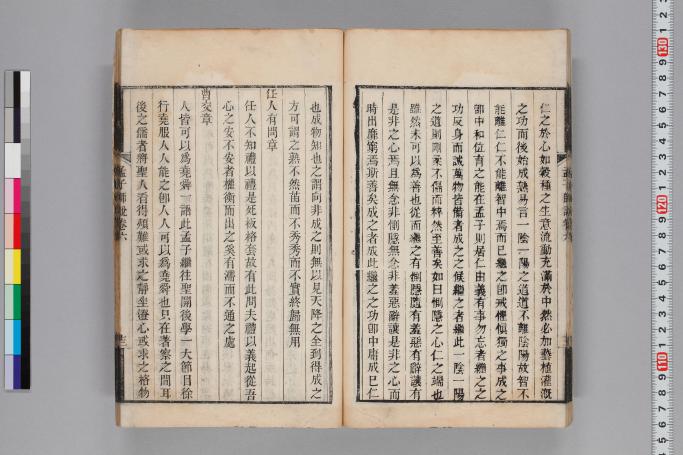 仁之於心如穀種之生意流動充滿於中然必加藝植灌漑
之功而後始成熟易言一陰一陽之道道不離陰陽故智不
能離仁仁不能離智中焉而已繼之卽戒懼愼獨之事成之
卽中和位育之能在孟子則居仁由義有事勿忘者繼之之
功反身而誠萬物皆備者成之之候繼之者繼此一陰一陽
之道則剛柔不偏而粹然至善矣如曰惻隱之心仁之端也
雖然未可以爲善也從而繼之有惻隱隨有羞惡有辭讓有
是非之心焉且無念非惻隱無念非羞惡辭讓是非之心而
時出靡窮焉斯善矣成之者成此繼之之功卽中庸成已仁
也成物知也之謂向非成之則無以見天降之全到得成之
方可謂之熟不然苗而不秀秀而不實終歸無用
任人有問章
任人不知禮以禮是死板格套故有此問夫禮以義起從吾
心之安不安者權衡而出之奚有滯而不通之處
曹交章
人皆可以爲堯舜一語此孟子繼往聖開後學一大節目徐
行堯服人人能之卽人人可以爲堯舜也只在著察之間耳
後之儒者將聖人看得煩難或求之靜坐澄心或求之格物
孟子師說卷六